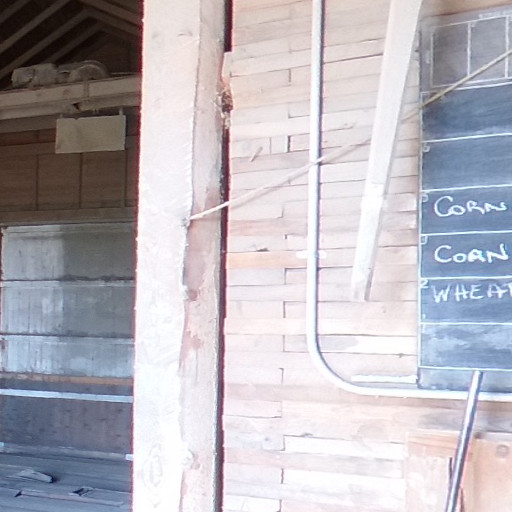 CORN
CORN
WHEAT